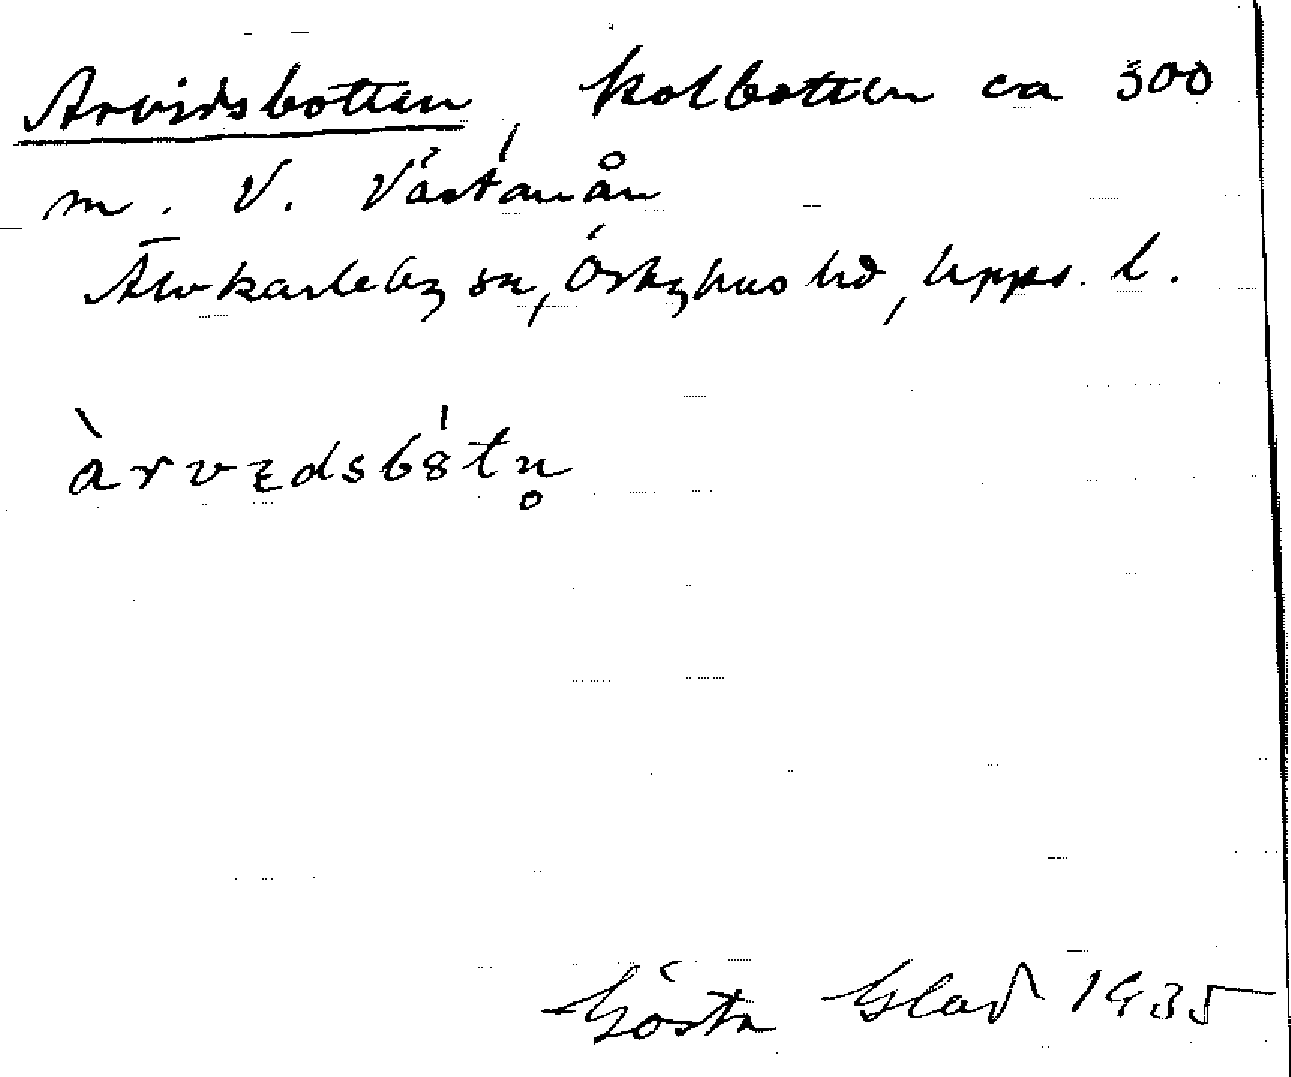 Arvidsbotten, kolbotten ca 300
m. V. Västanån
Älvkarleby sn, Örbyhus hd, Upps. l.
àrvędsbȣ́tn̥
Gösta Glad 1935